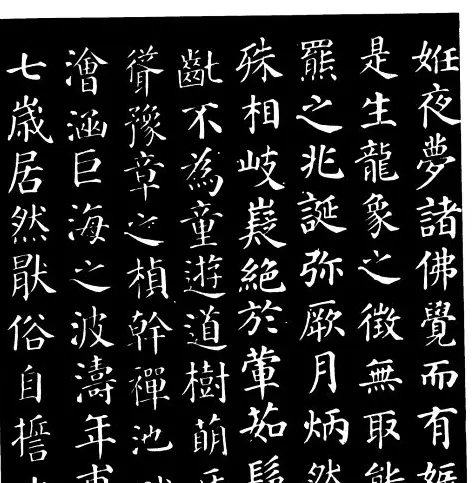 姙夜夢諸佛覺而有
是生龍象之徵無取熊
羆之兆誕弥厥月炳然
殊相岐嶷絕於葷茹髫
齔不為童遊道樹萌
聳豫章之楨幹禪池
澮涵巨海之波濤年甫
七歲居然猒俗自誓